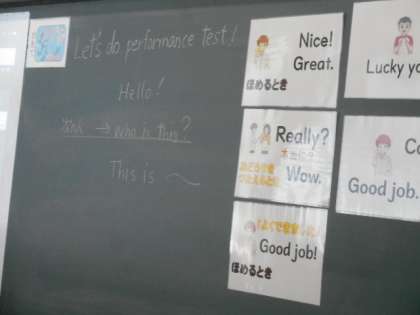 Let's do performance test!
Hello!
→ Who is this?
This is ～
Nice!
Great.
ほめるとき
Really?
本当に?
Wow.
Good job!
ほめるとき
Lucky yo
Good job.